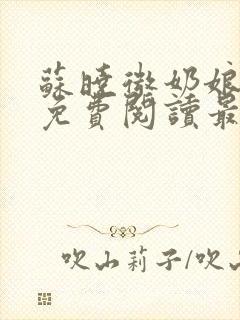 蘇曉微奶娘
免費閱讀最
吹山莉子/吹山